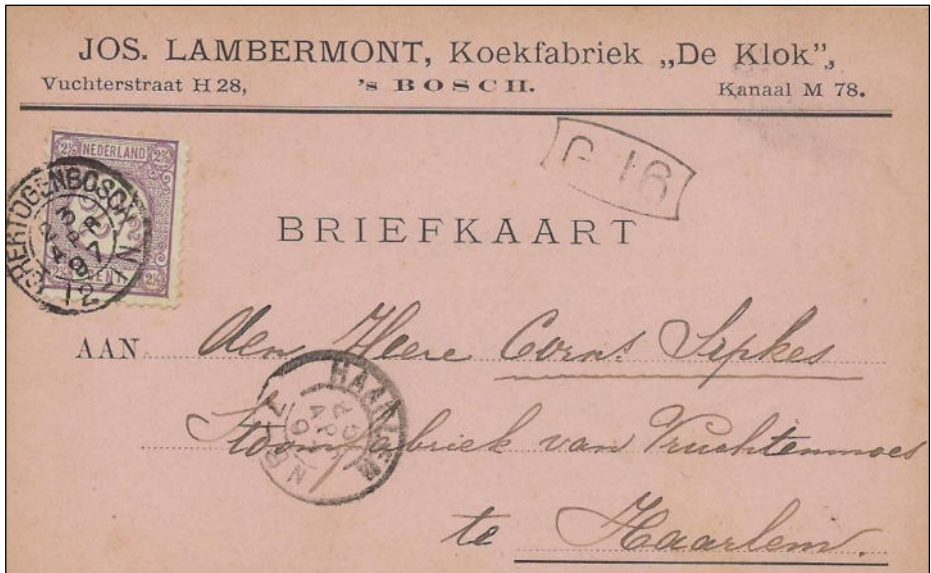 JOS. LAMBERMONT, Koekfabriek „De Klok”,
Vuchterstraat H 28, 's BOSCH. Kanaal M 78.
2½ NEDERLAND 2½
CENT
G 16
BRIEFKAART
AAN den Heere Corns. Sipkes
HAARLEM
Stoomfabriek van Vruchtenmoes
te Haarlem.